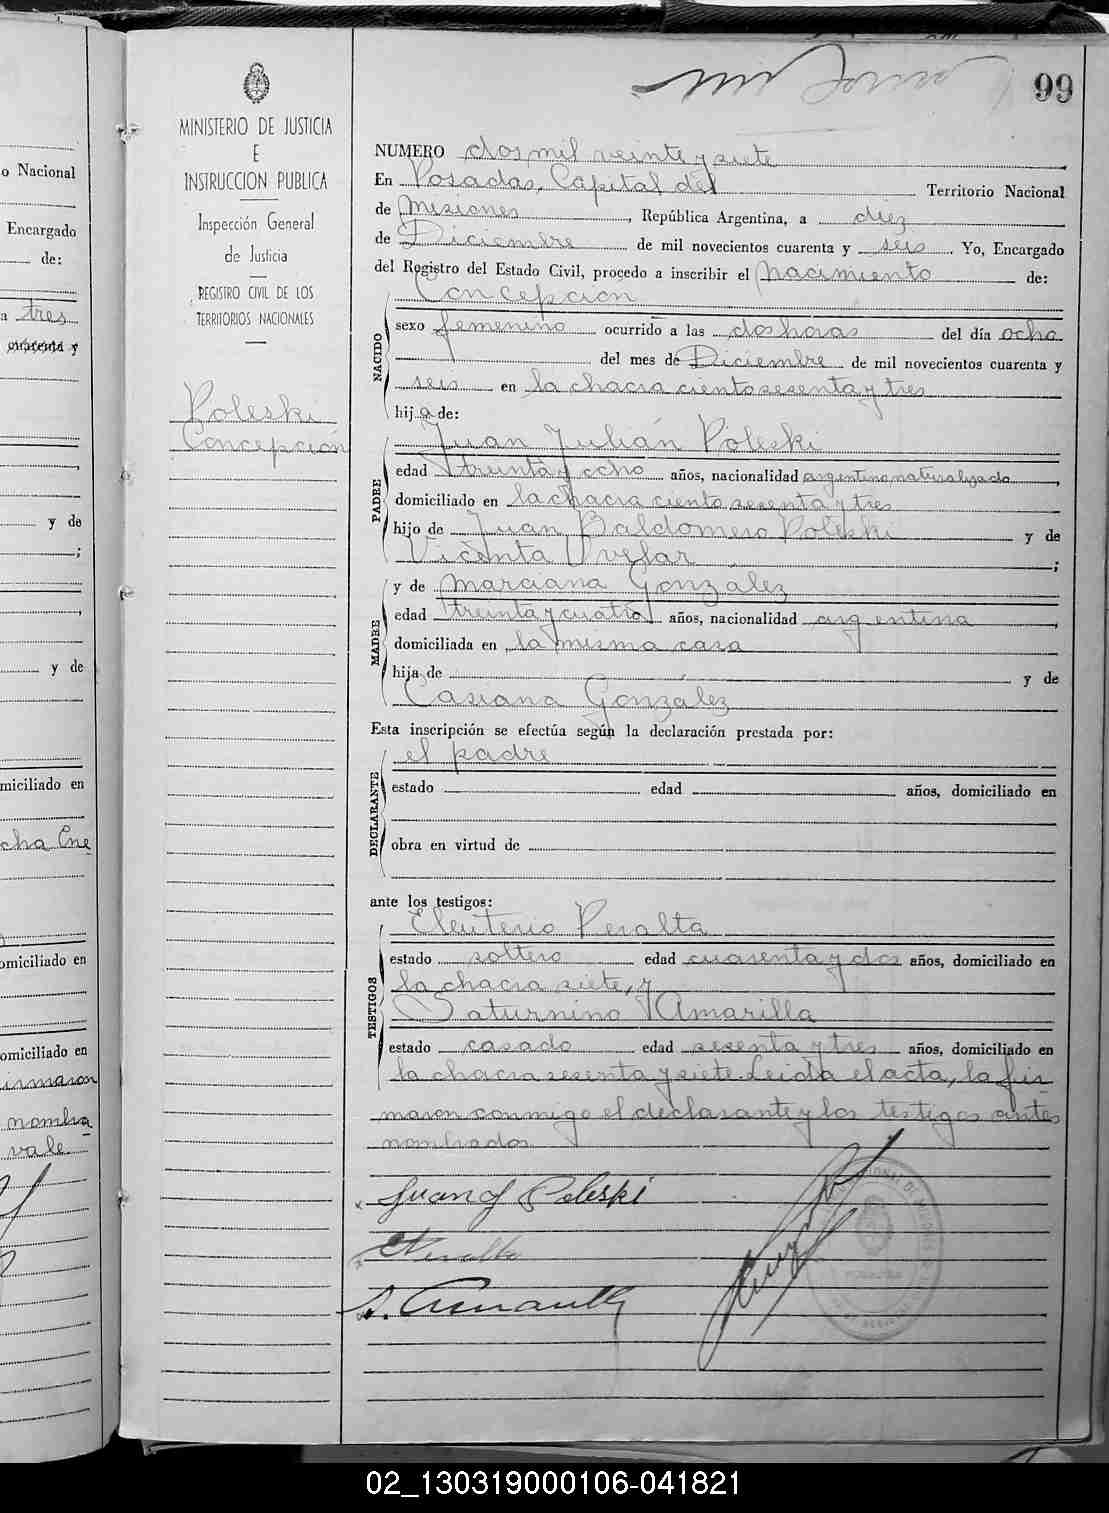 99
MINISTERIO DE JUSTICIA
E
INSTRUCCION PUBLICA
Inspección General
de Justicia
REGISTRO CIVIL DE LOS
TERRITORIOS NACIONALES
Poleski
Concepción
NUMERO dos mil veinte y siete
En Posadas, Capital del Territorio Nacional
de Misiones, República Argentina, a diez
de Diciembre de mil novecientos cuarenta y seis. Yo, Encargado
del Registro del Estado Civil, procedo a inscribir el nacimiento de:
Concepción
NACIDO
sexo femenino ocurrido a las dos horas del día ocho
del mes de Diciembre de mil novecientos cuarenta y
seis en la chacra ciento sesenta y tres
hija de:
Juan Julián Poleski
PADRE
edad treinta y ocho años, nacionalidad argentino naturalizado,
domiciliado en la chacra ciento sesenta y tres
hijo de Juan Baldomero Poleski y de
Vicenta Ovelar;
y de Marciana González
MADRE
edad treinta y cuatro años, nacionalidad argentina,
domiciliada en la misma casa
hija de y de
Casiana González
Esta inscripción se efectúa según la declaración prestada por:
el padre
DECLARANTE
estado edad años, domiciliado en
obra en virtud de
ante los testigos:
Eleuterio Peralta
TESTIGOS
estado soltero edad cuarenta y dos años, domiciliado en
la chacra siete, y
Saturnino Amarilla
estado casado edad sesenta y tres años, domiciliado en
la chacra sesenta y siete. Leida el acta, la fir-
maron conmigo el declarante y los testigos antes
nombrados.
Juan J Poleski
EPeralta
S. Amarilla
o Nacional
Encargado
de:
a tres
y
y de
;
y de
miciliado en
cha Ene
omiciliado en
omiciliado en
irmaron
nombra
vale.
02_130319000106-041821